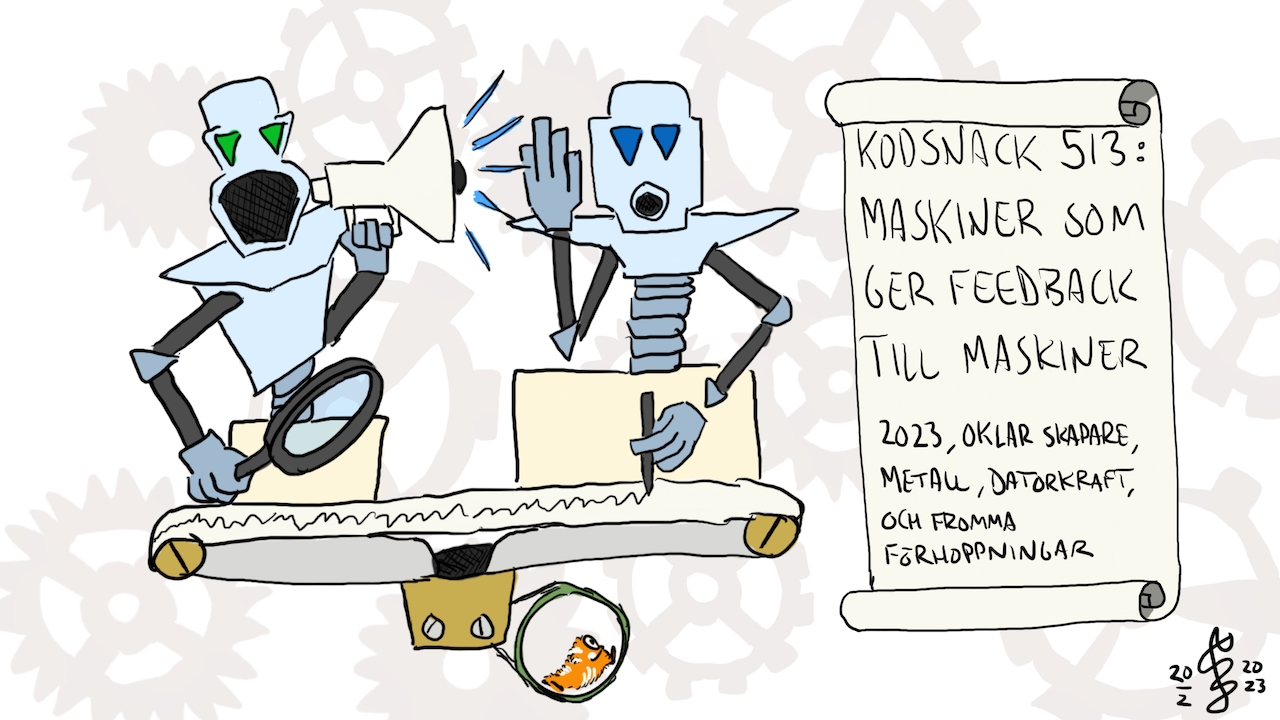 KODSNACK 513:
MASKINER SOM
GER FEEDBACK
TILL MASKINER
2023, OKLAR SKAPARE,
METALL, DATORKRAFT,
OCH FROMMA
FÖRHOPPNINGAR
20 20
2 23